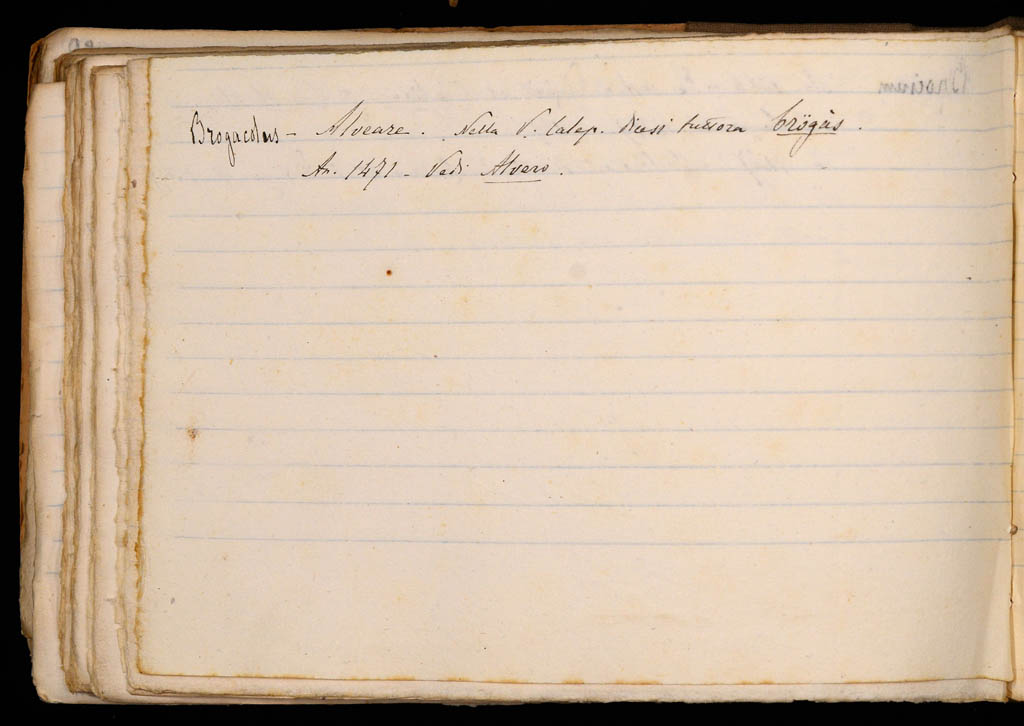 Brogacolus – Alveare. Nella V. Calep. dicesi tuttora brögàs.
An. 1471 – Vedi Alvero.